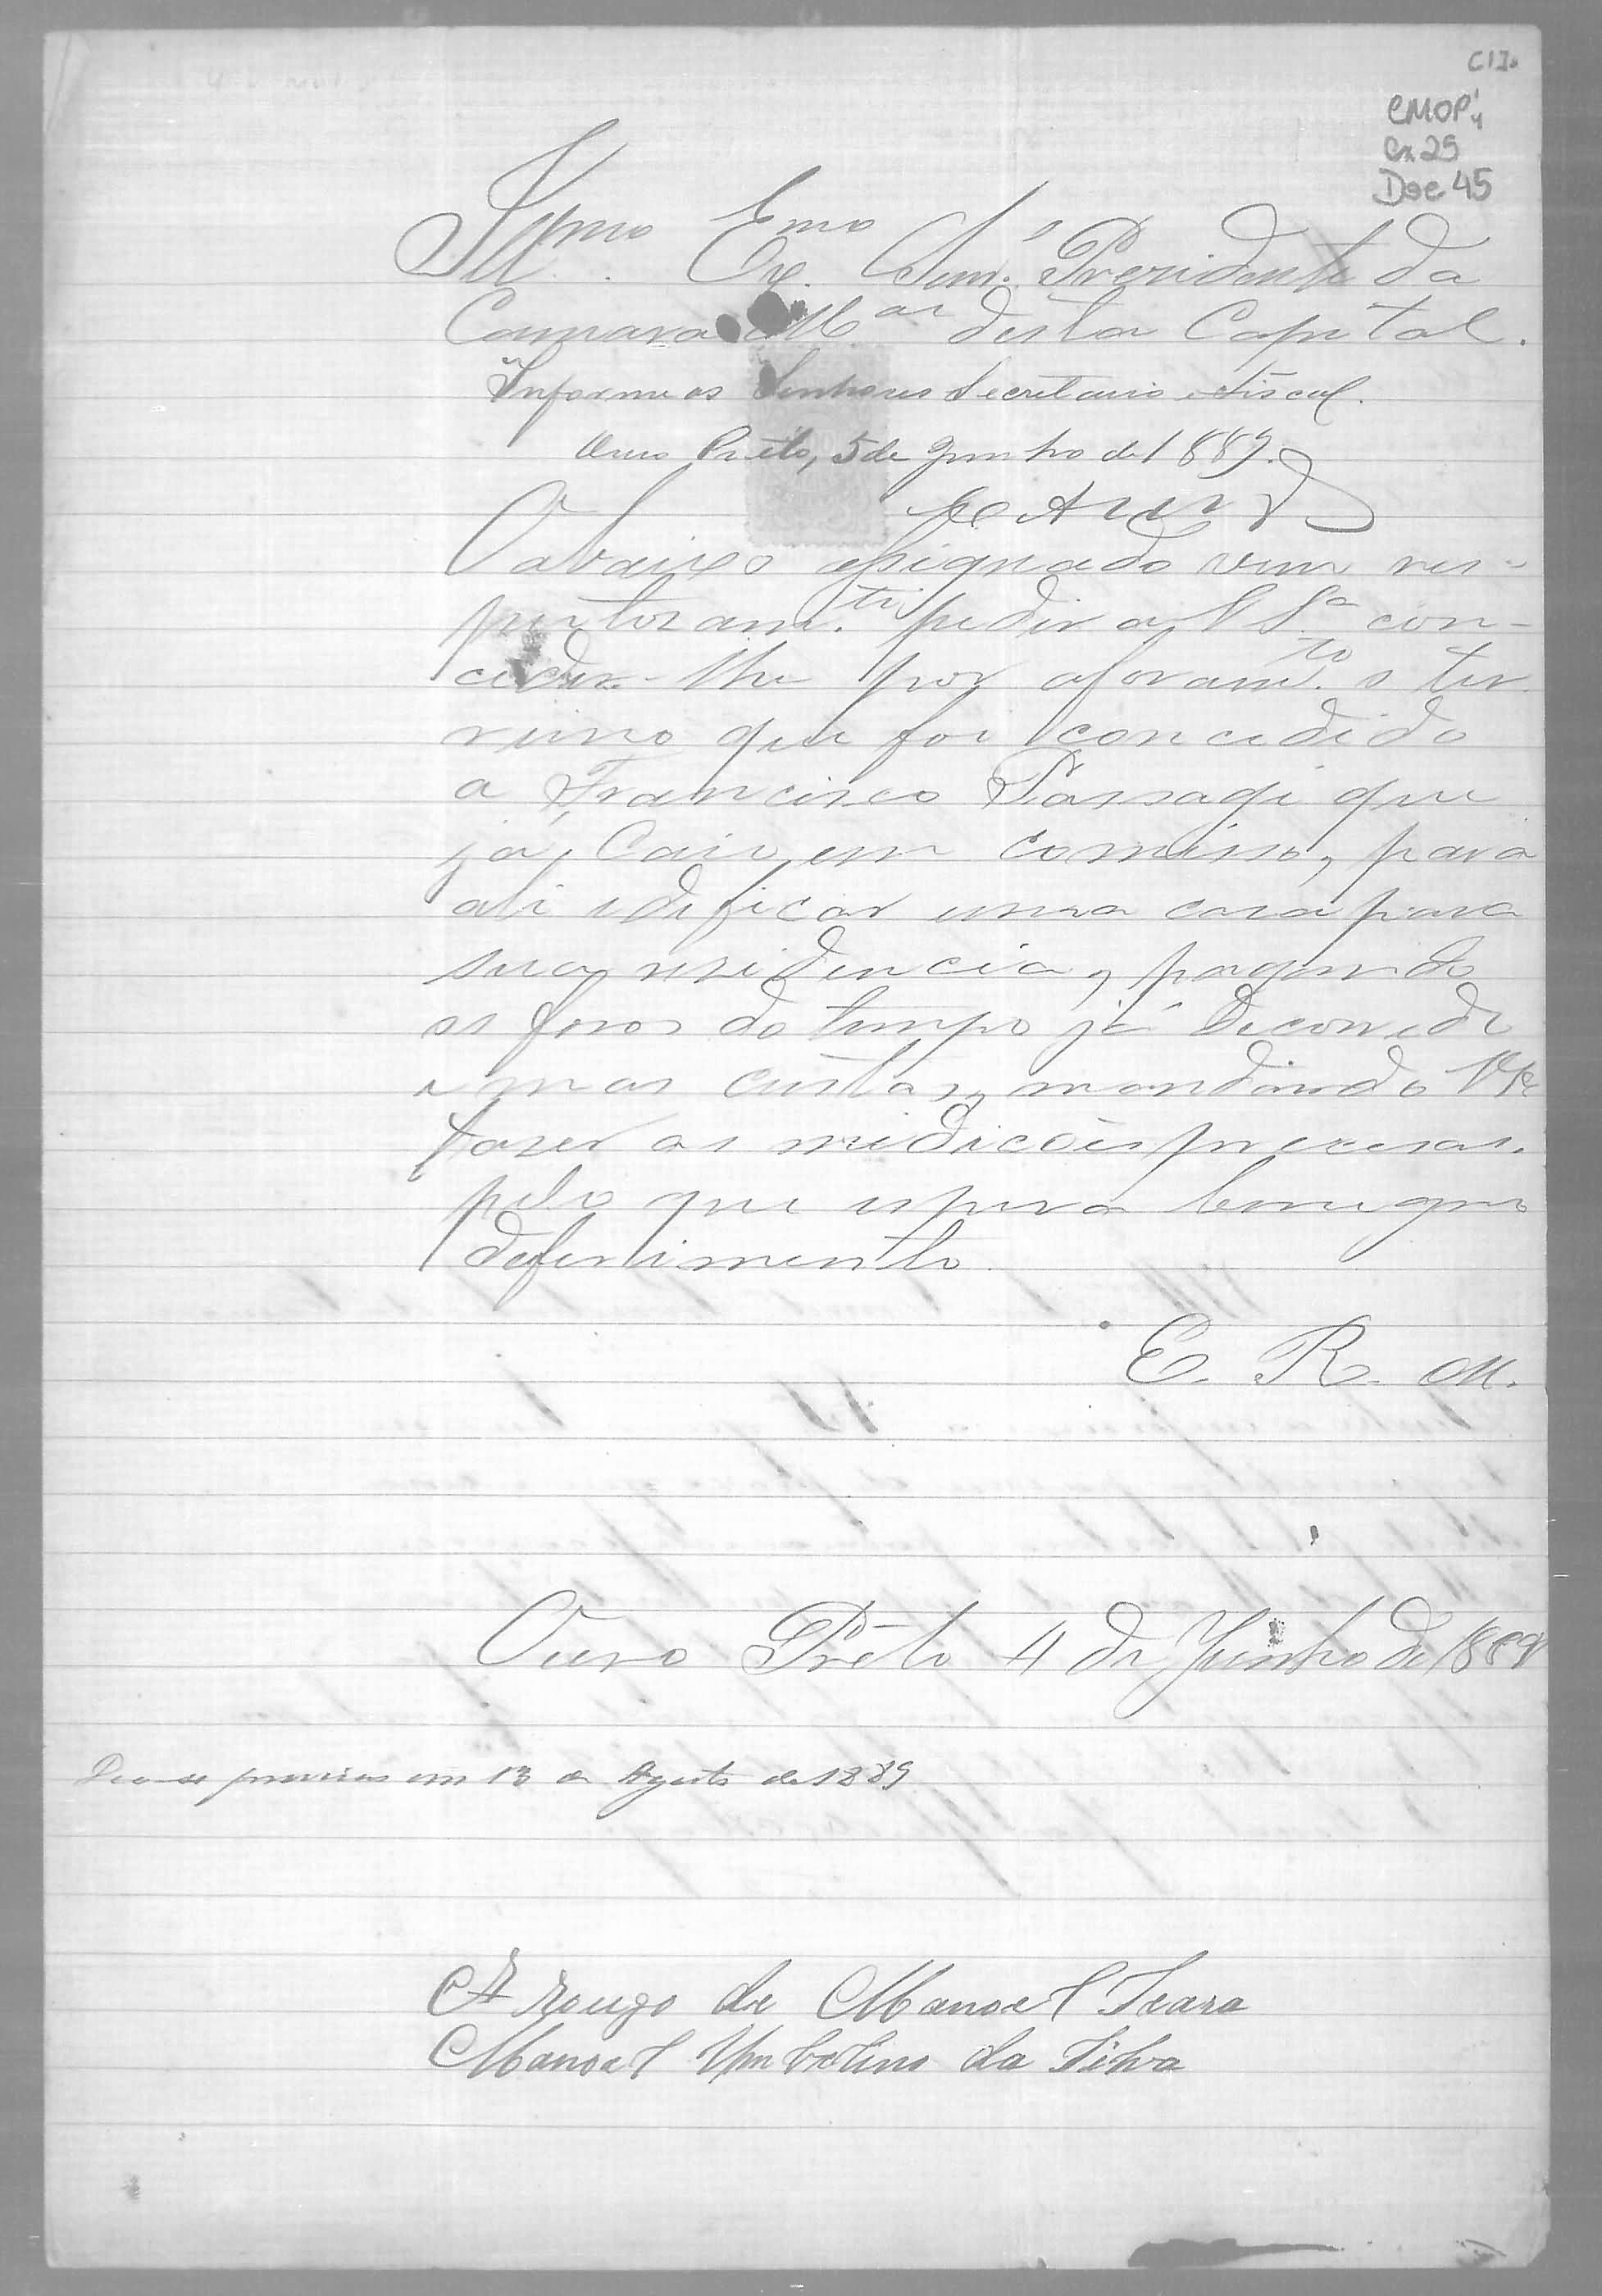 C17.
CMOP
Cx 25
Doc 45
Illmo Exmo Senr. Prezidente da
Camara Mal desta Capital.
Informe os Senhores Secretario e Fiscal.
Ouro Preto, 5 de Junho de 1889.
O abaixo assignado vem res-
peitozamte. pedir a V Sa con-
ceder-lhe por aforamto. o ter
reino que foi concedido
a Francisco que
já Caio em comisso, para
ali edificar uma casa para
sua residencia, pagando
os foros do tempo já Decorrido
e mas custas, mandando
fazer as medicões precisas.
pelo que espera benigno
deferimento.
E. R. M.
Ouro Prêto 4 de Junho de 1889
em 13 de Agosto de 1889
A rougo de Manoel
Manoel Umbelino da Silva